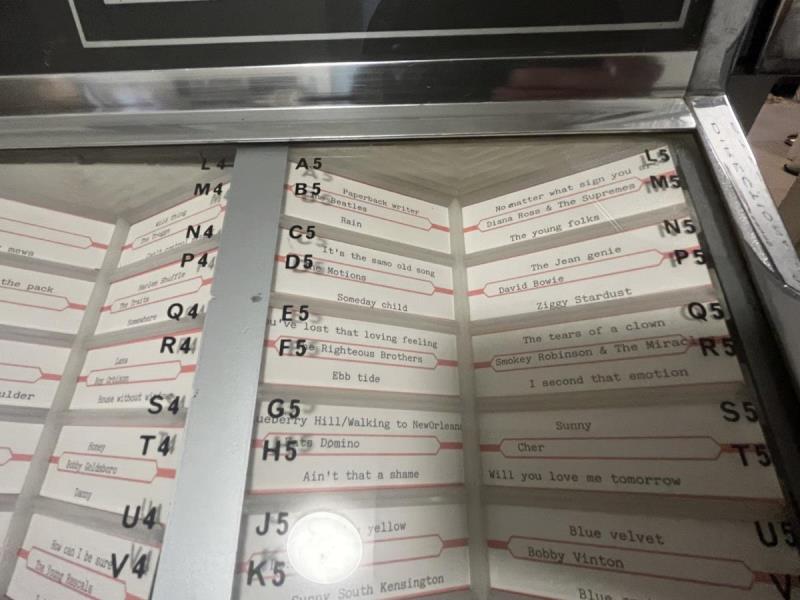 news
the pack
ulder
L4
M4
Wild thing
The Troggs
N4
P4
Harlem Shuffle
The Traits
Somewhere
Q4
R4
Lana
Roy Orbison
House without
S4
T4
Honey
Bobby Goldsboro
Danny
U4
V4
How can I be sure
The Young Rascals
A5
B5
Paperback writer
The Beatles
Rain
C5
D5
It's the samo old song
The Motions
Someday child
E5
F5
u've lost that loving feeling
The Righteous Brothers
Ebb tide
G5
H5
ueberry Hill/Walking to NewOrlean
ats Domino
Ain't that a shame
J5
K5
yellow
Sunny South Kensington
L5
M5
No matter what sign you
Diana Ross & The Supremes
The young folks
N5
P5
The Jean genie
David Bowie
Ziggy Stardust
Q5
R5
The tears of a clown
Smokey Robinson & The Miracl
I second that emotion
S5
T5
Sunny
Cher
Will you love me tomorrow
U5
V
Blue velvet
Bobby Vinton
Blue